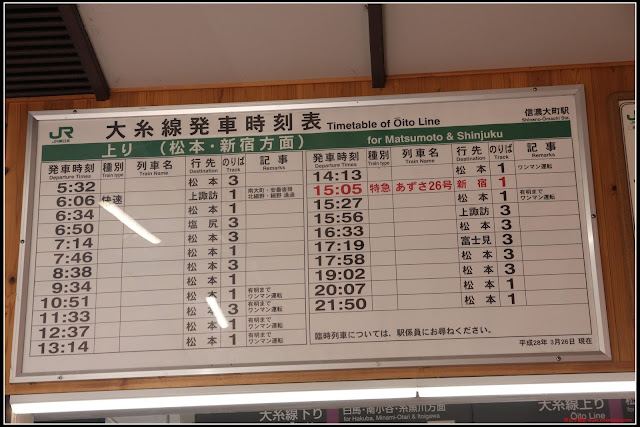 JR
大糸線発車時刻表 Timetable of Ōito Line
信濃大町駅
Shinano-Ōmachi Sta.
上り (松本・新宿方面) for Matsumoto & Shinjuku
発車時刻 種別 列車名 行先 のりば 記事
Departure Times Train type Train Name Destination Track Remarks
5:32 松本 3
6:06 快速 上諏訪 1
6:34 松本 1
6:50 塩尻 3
7:14 松本 1
7:46 松本 3
8:38 松本 3
9:34 松本 1
10:51 松本 1 有明までワンマン運転
11:33 松本 3 有明までワンマン運転
12:37 松本 1 有明までワンマン運転
13:14 松本 1 有明までワンマン運転
発車時刻 種別 列車名 行先 のりば 記事
Departure Times Train type Train Name Destination Track Remarks
14:13 松本 1 ワンマン運転
15:05 特急 あずさ26号 新宿 1
15:27 松本 1 有明までワンマン運転
15:56 上諏訪 3
16:33 松本 3
17:19 富士見 3
17:58 松本 3
19:02 松本 3
20:07 松本 1
21:50 松本 1
臨時列車については、駅係員にお尋ねください。
平成28年 3月26日 現在
大糸線下り 白馬・南小谷・糸魚川方面
for Hakuba, Minami-Otari & Itoigawa
大糸線上り
Ōito Line